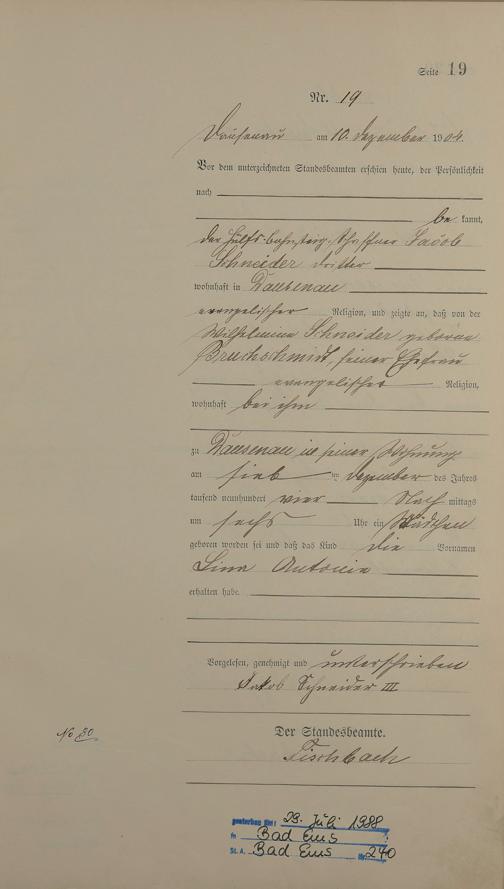 Seite 19
Nr. 19
Dausenau am 10. Dezember 1904.
Vor dem unterzeichneten Standesbeamten erschien heute, der Persönlichkeit
nach
bekannt,
der Hülfs-bahnsteig-Schaffner Jacob
Schneider dritter
wohnhaft in Dausenau
evangelischer Religion, und zeigte an, daß von der
Wilhelmine Schneider geborene
Bruchschmidt, seiner Ehefrau
evangelischer Religion,
wohnhaft bei ihm
zu Dausenau in seiner Wohnung
am sieb ten Dezember des Jahres
tausend neunhundert vier Nach mittags
um sechs Uhr ein Mädchen
geboren worden sei und daß das Kind die Vornamen
Lina Antonie
erhalten habe.
Vorgelesen, genehmigt und unterschrieben
Jakob Schneider III
No 30
Der Standesbeamte.
Fischbach
gestorben am: 29. Juli 1988
in Bad Ems
St. A. Bad Ems Nr. 240